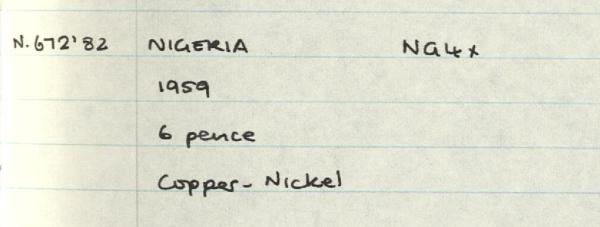 N.672'82 NIGERIA NG4x
1959
6 pence
Copper-Nickel